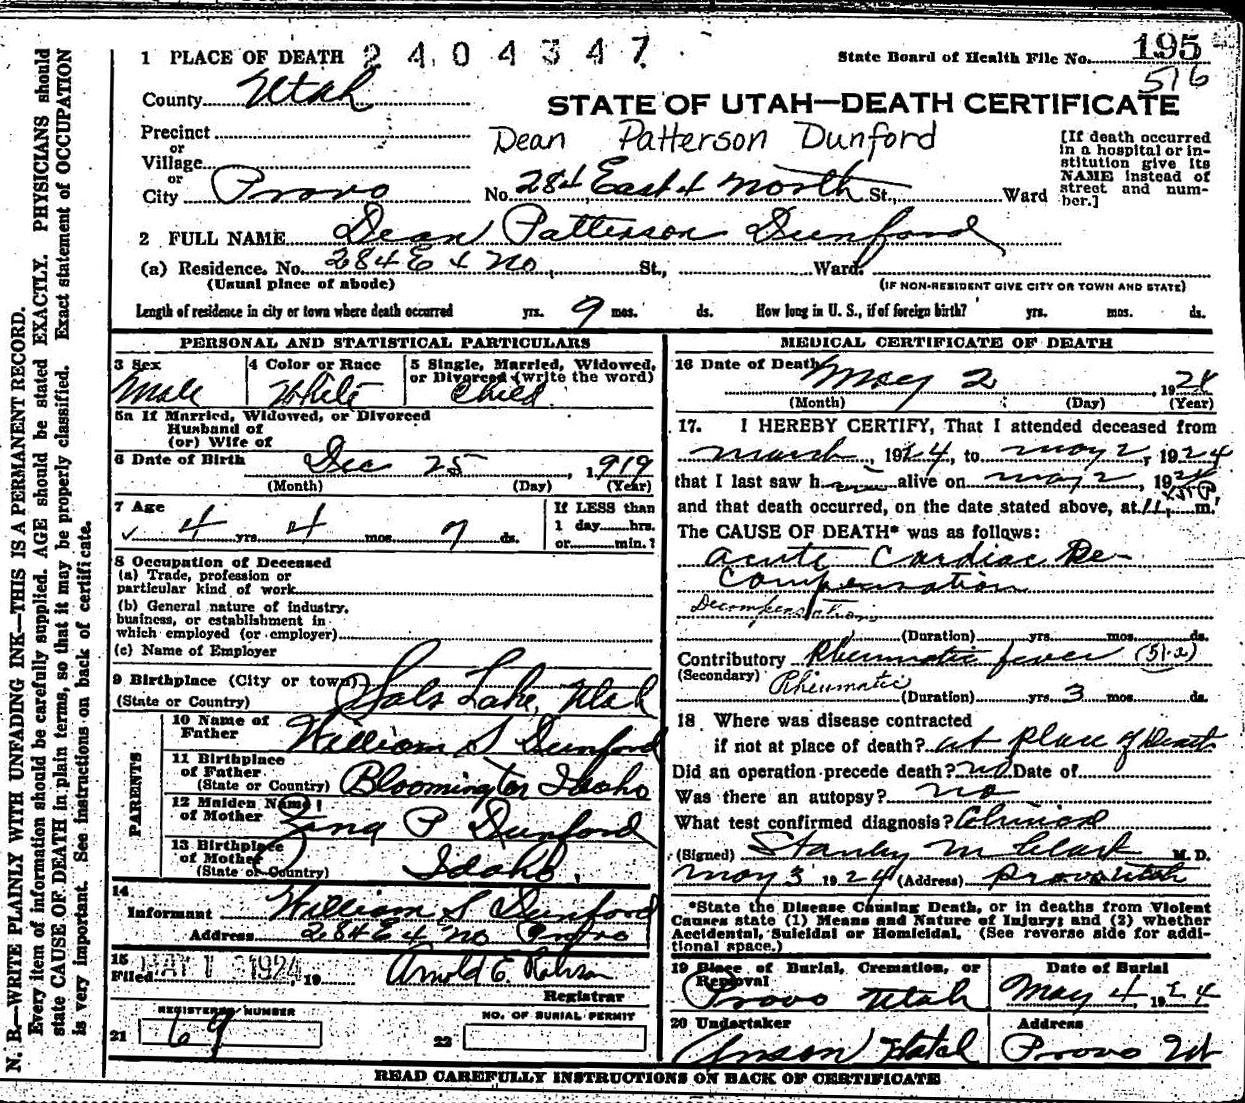 N. B.—WRITE PLAINLY WITH UNFADING INK—THIS IS A PERMANENT RECORD.
Every item of information should be carefully supplied. AGE should be stated EXACTLY. PHYSICIANS should
state CAUSE OF DEATH in plain terms, so that it may be properly classified. Exact statement of OCCUPATION
is very important. See instructions on back of certificate.
1 PLACE OF DEATH 2404347
State Board of Health File No. 195
516
County Utah
STATE OF UTAH—DEATH CERTIFICATE
Precinct
or
Village
or
City Provo
Dean Patterson Dunford
No. 284 East 4 North St., Ward
[If death occurred
in a hospital or in-
stitution give its
NAME instead of
street and num-
ber.]
2 FULL NAME Dean Patterson Dunford
(a) Residence. No. 284 E 4 No St., Ward.
(Usual place of abode) (IF NON-RESIDENT GIVE CITY OR TOWN AND STATE)
Length of residence in city or town where death occurred yrs. 9 mos. ds. How long in U. S., if of foreign birth? yrs. mos. ds.
PERSONAL AND STATISTICAL PARTICULARS
3 Sex
Male
4 Color or Race
White
5 Single, Married, Widowed,
or Divorced (write the word)
Child
5a If Married, Widowed, or Divorced
Husband of
(or) Wife of
6 Date of Birth Dec 25, 1919
(Month) (Day) (Year)
7 Age
4 yrs. 4 mos. 7 ds.
If LESS than
1 day hrs.
or min.?
8 Occupation of Deceased
(a) Trade, profession or
particular kind of work
(b) General nature of industry,
business, or establishment in
which employed (or employer)
(c) Name of Employer
9 Birthplace (City or town) Salt Lake, Utah
(State or Country)
PARENTS
10 Name of
Father William S Dunford
11 Birthplace
of Father
(State or Country) Bloomington Idaho
12 Maiden Name
of Mother Zina P Dunford
13 Birthplace
of Mother
(State or Country) Idaho
14
Informant William S Dunford
Address 284 E 4 No Provo
15
Filed MAY 1 1924, 19
Arnold E.
Registrar
REGISTERED NUMBER
21 69
NO. OF BURIAL PERMIT
22
MEDICAL CERTIFICATE OF DEATH
16 Date of Death May 2 1924
(Month) (Day) (Year)
17. I HEREBY CERTIFY, That I attended deceased from
March, 1924, to May 2, 1924
that I last saw h alive on May 2, 1924
and that death occurred, on the date stated above, at 11 P m.
The CAUSE OF DEATH* was as follows:
Acute Cardiac De-
compensation
Decompensation
(Duration) yrs. mos. ds.
Contributory Rheumatic fever (51-2)
(Secondary) Rheumatic
(Duration) yrs. 3 mos. ds.
18 Where was disease contracted
if not at place of death? at place of Death
Did an operation precede death? no Date of
Was there an autopsy? no
What test confirmed diagnosis? Clinical
(Signed) Stanley M Clark M. D.
May 3 1924 (Address) Provo Utah
*State the Disease Causing Death, or in deaths from Violent
Causes state (1) Means and Nature of Injury; and (2) whether
Accidental, Suicidal or Homicidal. (See reverse side for addi-
tional space.)
19 Place of Burial, Cremation, or
Removal
Provo Utah
Date of Burial
May 4, 1924
20 Undertaker
Anson Hatch
Address
Provo Ut
READ CAREFULLY INSTRUCTIONS ON BACK OF CERTIFICATE